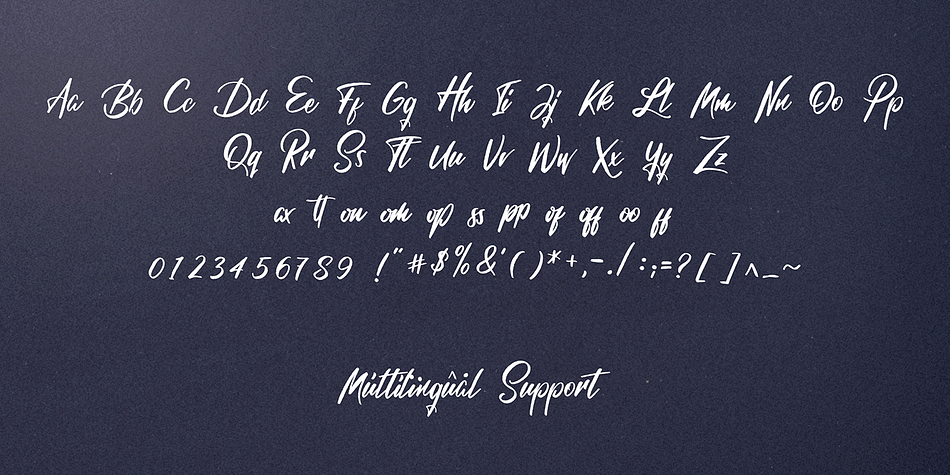 Aa Bb Cc Dd Ee Ff Gg Hh Ii Jj Kk Ll Mm Nn Oo Pp
Qq Rr Ss Tt Uu Vv Ww Xx Yy Zz
ax tt on om op ss pp of off oo ff
0123456789 !"#$%&'()*+,-./:;=?[]^_~
Múltilingûäl Support